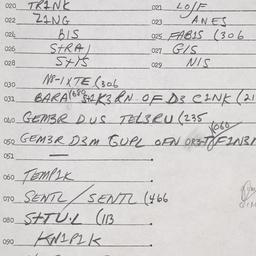 020 TRINK 021 LO/F
022 ZING 023 ANES
024 BIS 025 FABIS (306
026 STRA/ 027 GIS
028 S+/S 029 NIS
030 NS-IXTE (306
031 BARA S+K3RN OF D3 CINK (21
040 GEM3R D US TEL3RU (235
050 GEM3R D3M GUPL OFN
052
060 TEMPIK
070 SENTL / SENTL (466
080 S+TUL (113
090 KNIPIK